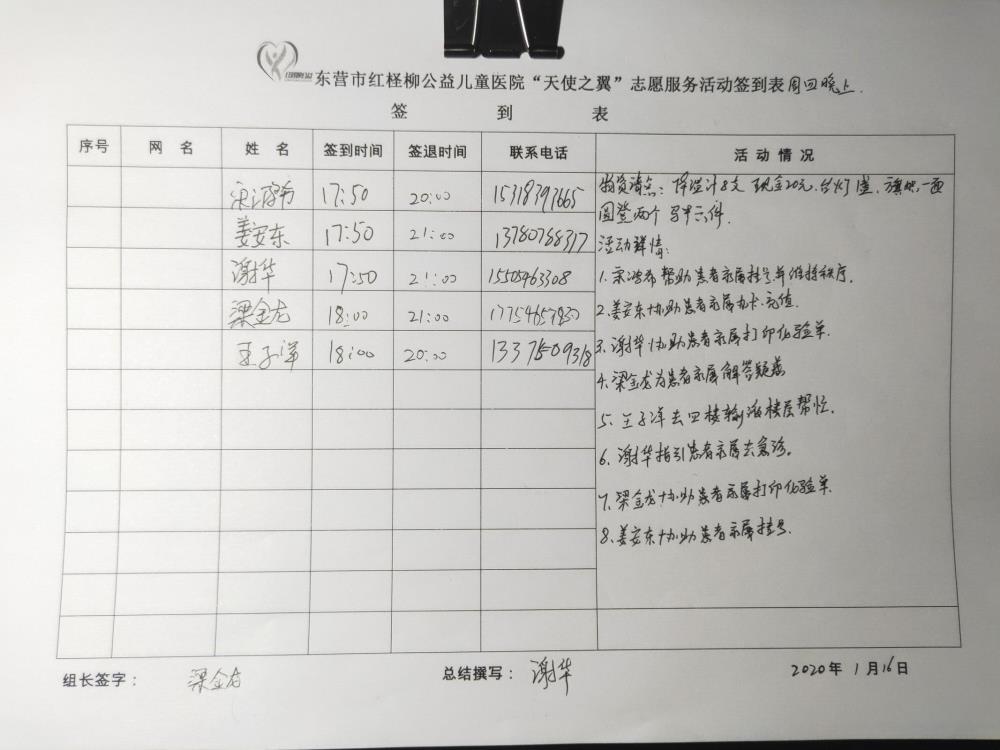 东营市红柽柳公益儿童医院“天使之翼”志愿服务活动签到表 周四晚上.
签 到 表
序号 网 名 姓 名 签到时间 签退时间 联系电话 活 动 情 况
17:50 20:00 15318393665
姜安东 17:50 21:00 13780788317
谢华 17:50 21:00 15505463308
梁金龙 18:00 21:00 17754657830
王子洋 18:00 20:00 13375509318
物资清点: 体温计8支 现金20元.台灯1盏.旗帜一面
两个 马甲六件.
活动详情:
1.宋鸿希帮助患者家属挂号并维持秩序.
2.姜安东协助患者家属办卡.充值.
3.谢华协助患者家属打印化验单.
4.梁金龙为患者家属解答疑惑
5.王子洋去四楼输液楼层帮忙.
6.谢华指引患者家属去急诊。
7.梁金龙协助患者家属打印化验单.
8.姜安东协助患者家属挂号.
组长签字: 梁金龙 总结撰写: 谢华 2020年1月16日